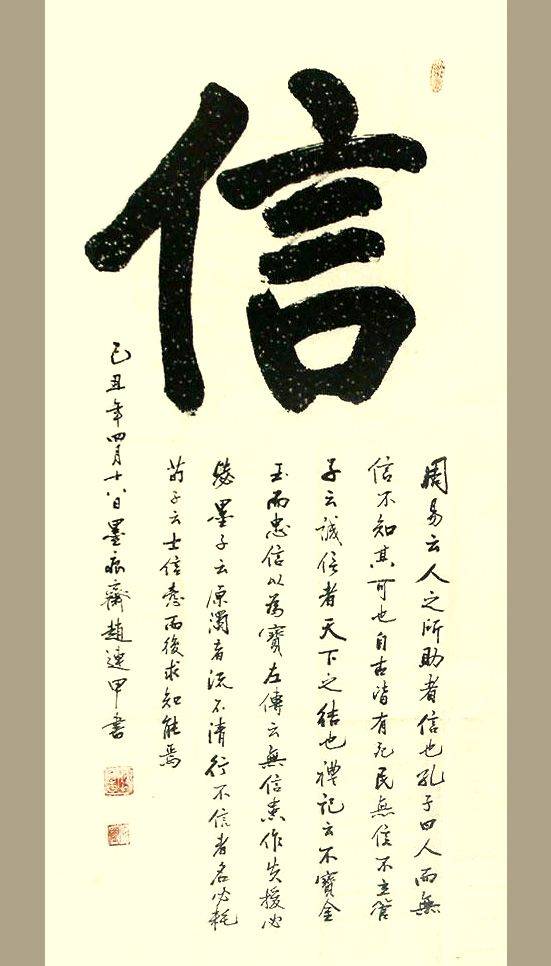 信
周易云人之所助者信也孔子曰人而無
信不知其可也自古皆有死民無信不立管
子云誠信者天下之结也禮記云不寶金
玉而忠信以為寶左傳云無信患作失援必
斃墨子云原濁者流不清行不信者名必耗
荀子云士信愨而後求知能焉
己丑年四月十八日墨痕齋趙連甲书